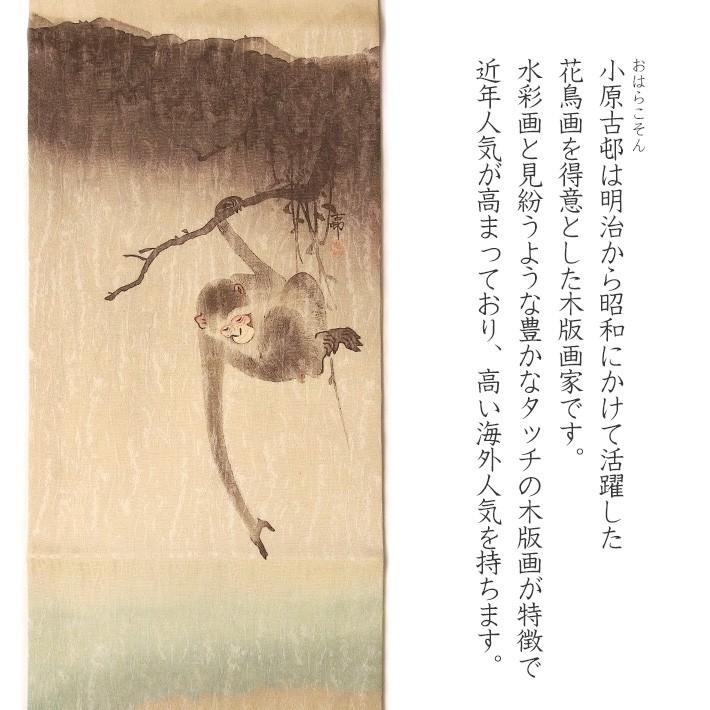 おはらこそん
小原古邨は明治から昭和にかけて活躍した
花鳥画を得意とした木版画家です。
水彩画と見紛うような豊かなタッチの木版画が特徴で
近年人気が高まっており、高い海外人気を持ちます。